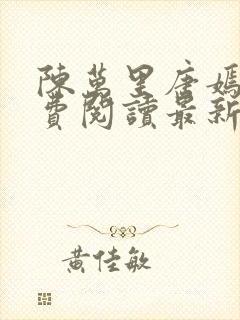 陳萬里唐嫣
費閱讀最新
黃佳敏